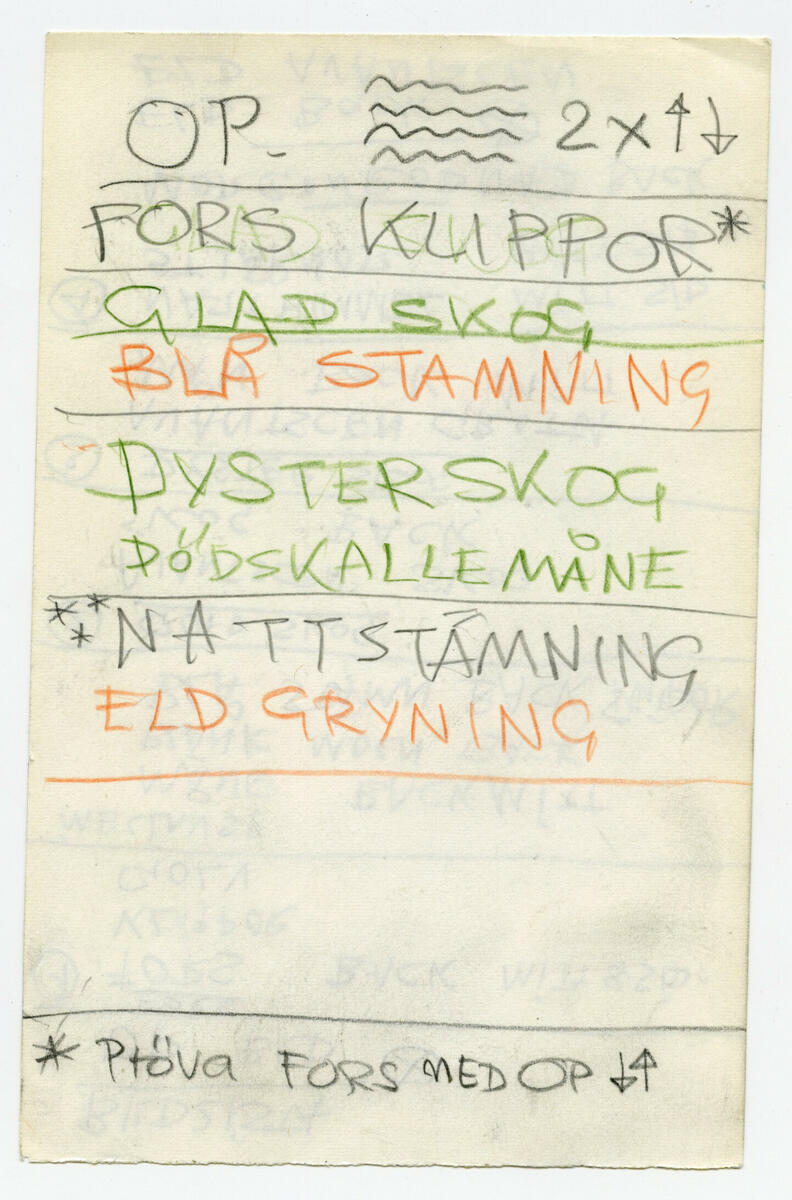 OP- 2 x ↑↓
FORS KLIPPOR*
GLAD SKOG
BLÅ STAMNING
DYSTER SKOG
DÖDSKALLE MÅNE
*** NATTSTÄMNING
ELD GRYNING
* Pröva FORS MED OP ↓↑